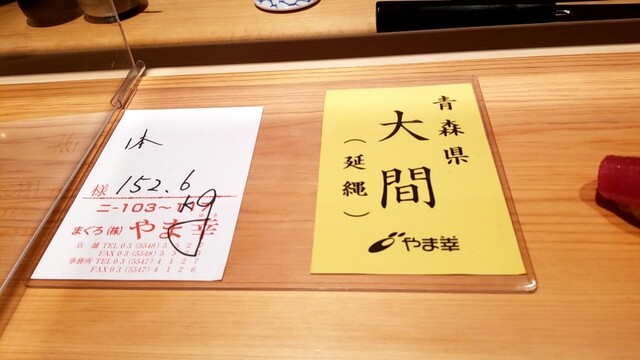 本
様 152.6
ニ-103~119
まぐろ(株) やま幸
店舗 TEL 03 (5548) 5 5 2 7
FAX 03 (5548) 5 5
事務所 TEL 03 (5547) 4 1 2 7
FAX 03 (5547) 4 1 2 6
青森県
大間
(延縄)
やま幸